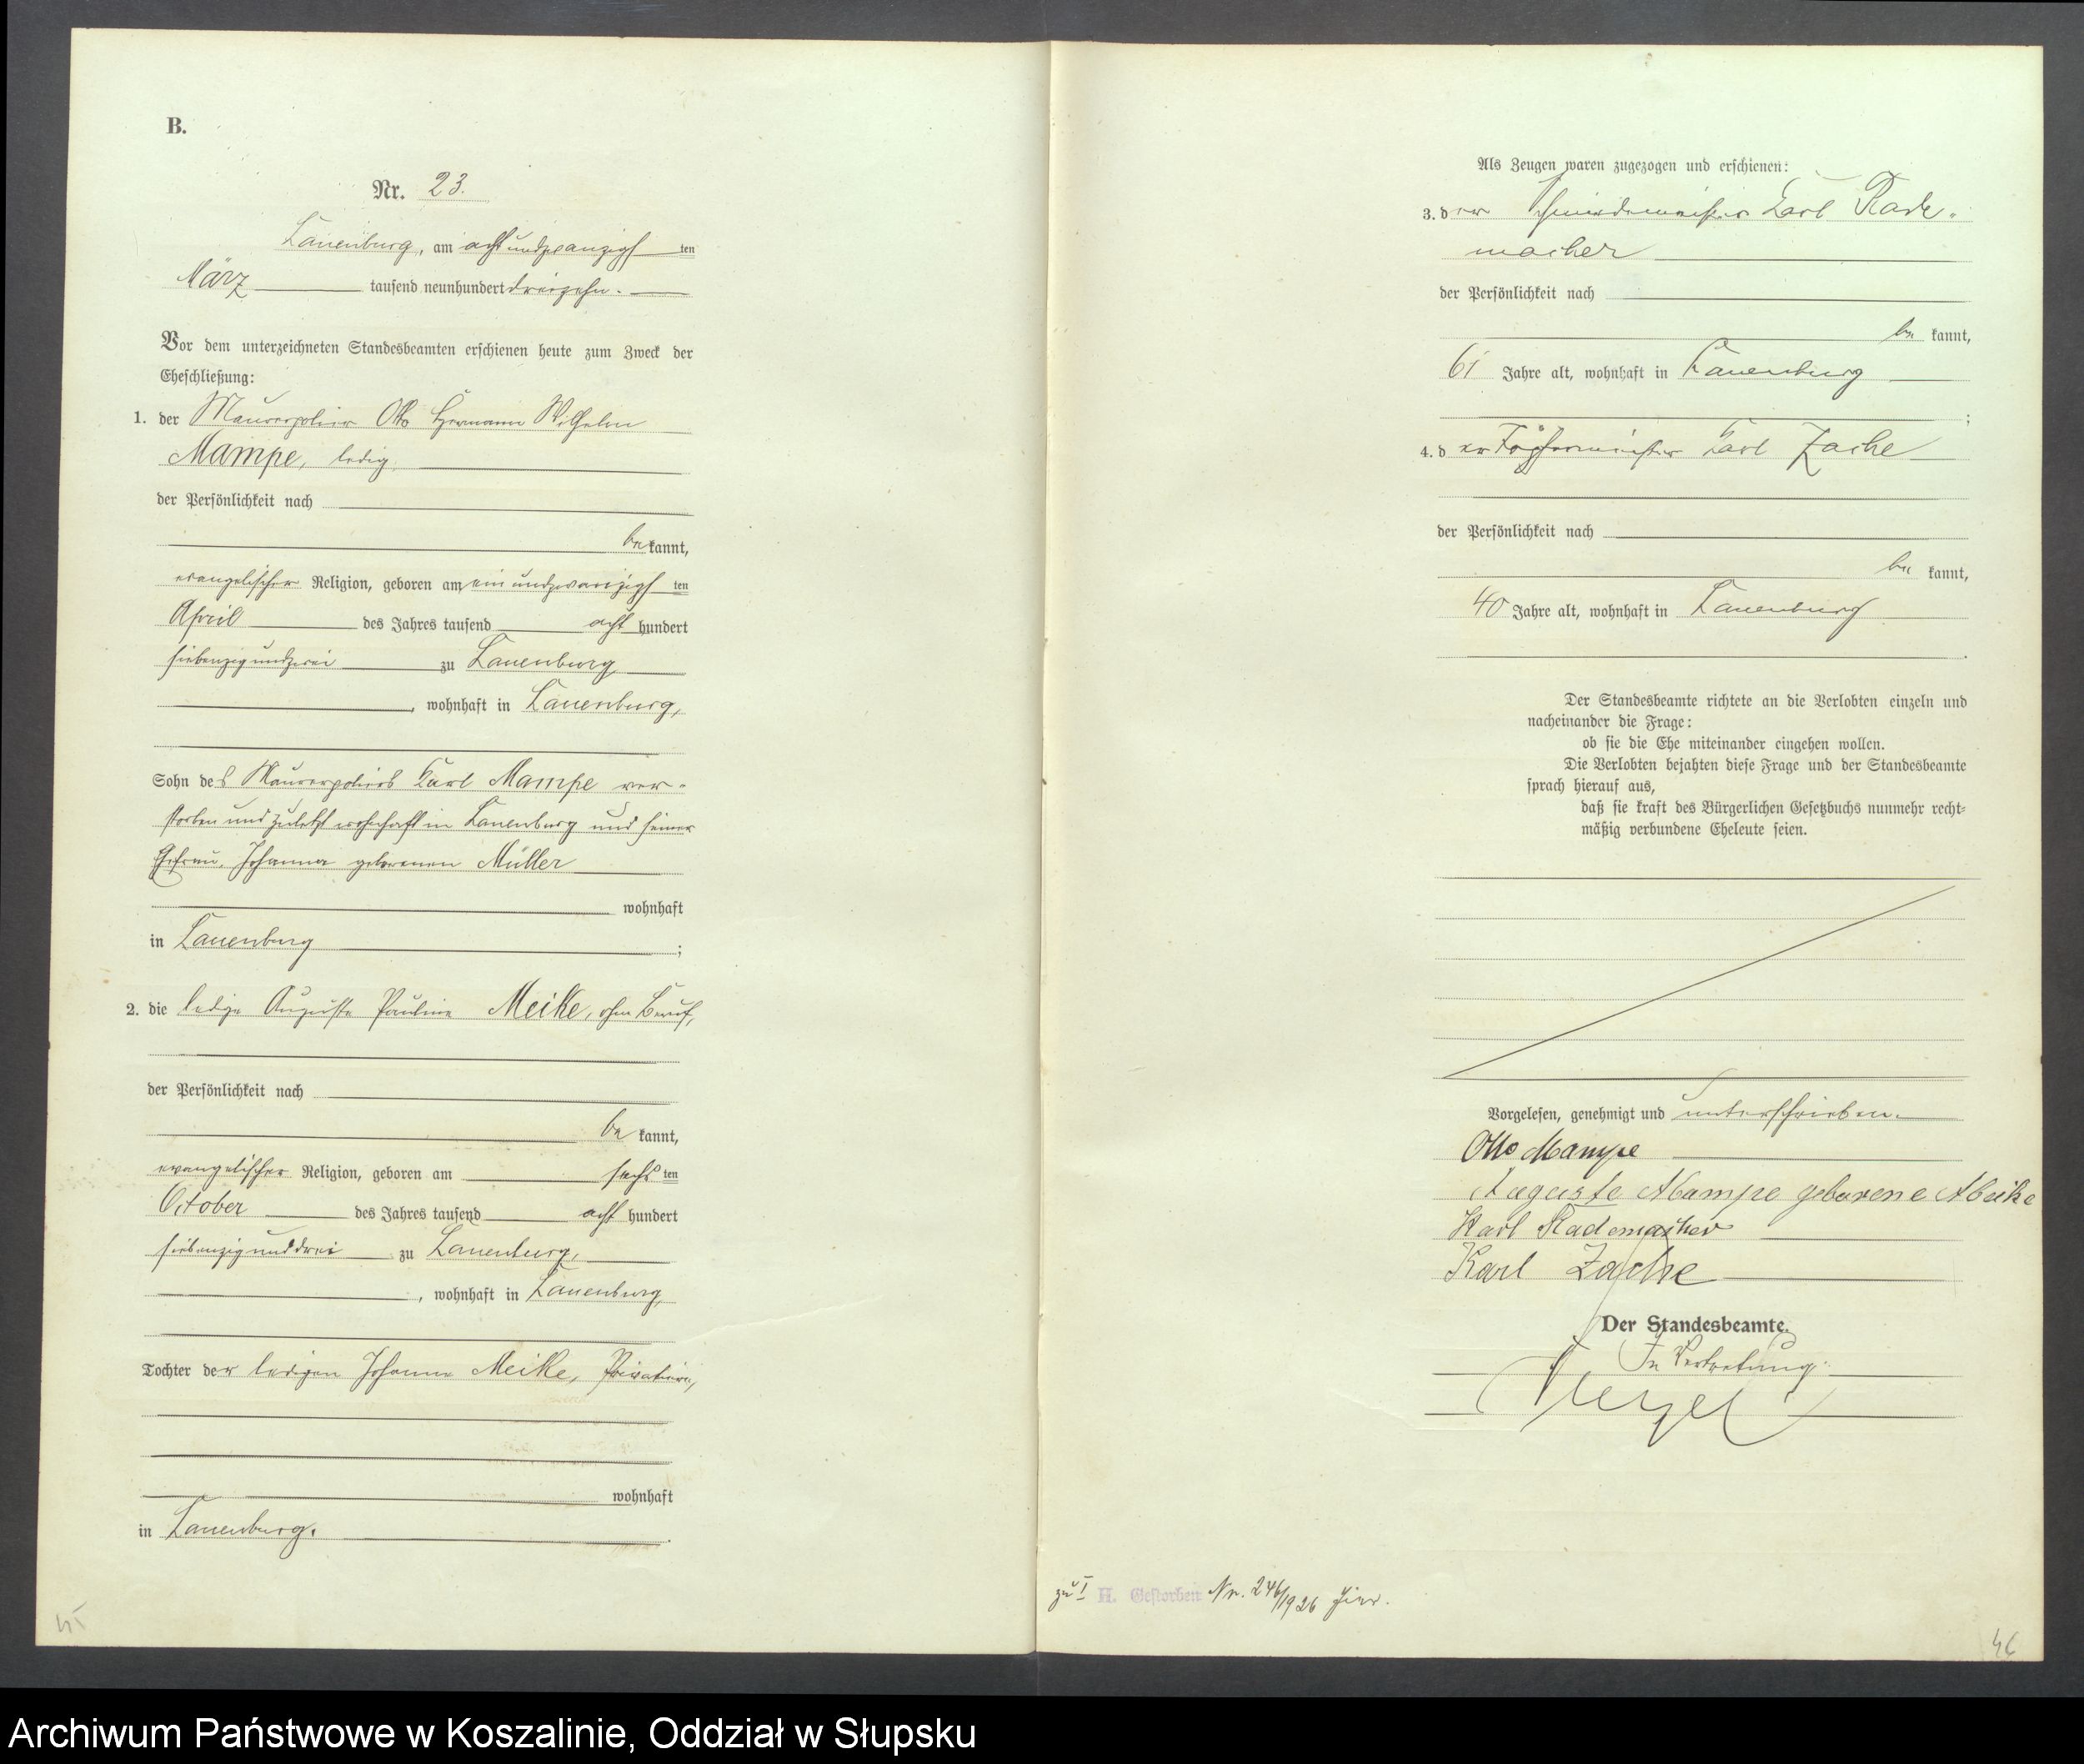 B.
Nr. 23.
Lauenburg, am achtundzwanzigsten
März tausend neunhundert dreizehn.
Vor dem unterzeichneten Standesbeamten erschienen heute zum Zweck der
Eheschließung:
1. der Maurerpolier Otto Hermann Wilhelm
Mampe, ledig,
der Persönlichkeit nach
be kannt,
evangelischer Religion, geboren am einundzwanzigsten
April des Jahres tausend acht hundert
siebenzigundzwei zu Lauenburg
, wohnhaft in Lauenburg,
Sohn des Maurerpoliers Karl Mampe ver-
storben und zuletzt wohnhaft in Lauenburg und seiner
Ehefrau, Johanna geborenen Müller
wohnhaft
in Lauenburg ;
2. die ledige Auguste Pauline Meike, ohne Beruf,
der Persönlichkeit nach
be kannt,
evangelischer Religion, geboren am sechsten
October des Jahres tausend acht hundert
siebenzigunddrei zu Lauenburg,
, wohnhaft in Lauenburg
Tochter der ledigen Johanne Meike, Privatiere,
wohnhaft
in Lauenburg.
45
Als Zeugen waren zugezogen und erschienen:
3. der Schmiedemeister Karl Rade-
macher
der Persönlichkeit nach
be kannt,
61 Jahre alt, wohnhaft in Lauenburg
;
4. der Töpfermeister Karl Zache
der Persönlichkeit nach
be kannt,
40 Jahre alt, wohnhaft in Lauenburg
.
Der Standesbeamte richtete an die Verlobten einzeln und
nacheinander die Frage:
ob sie die Ehe miteinander eingehen wollen.
Die Verlobten bejahten diese Frage und der Standesbeamte
sprach hierauf aus,
daß sie kraft des Bürgerlichen Gesetzbuchs nunmehr recht-
mäßig verbundene Eheleute seien.
Vorgelesen, genehmigt und unterschrieben.
Otto Mampe
Auguste Mampe geborene Meike
Karl Rademacher
Karl Zache
Der Standesbeamte.
In Vertretung:
zu I H. Gestorben Nr. 246/1926 hier.
46
Archiwum Państwowe w Koszalinie, Oddział w Słupsku